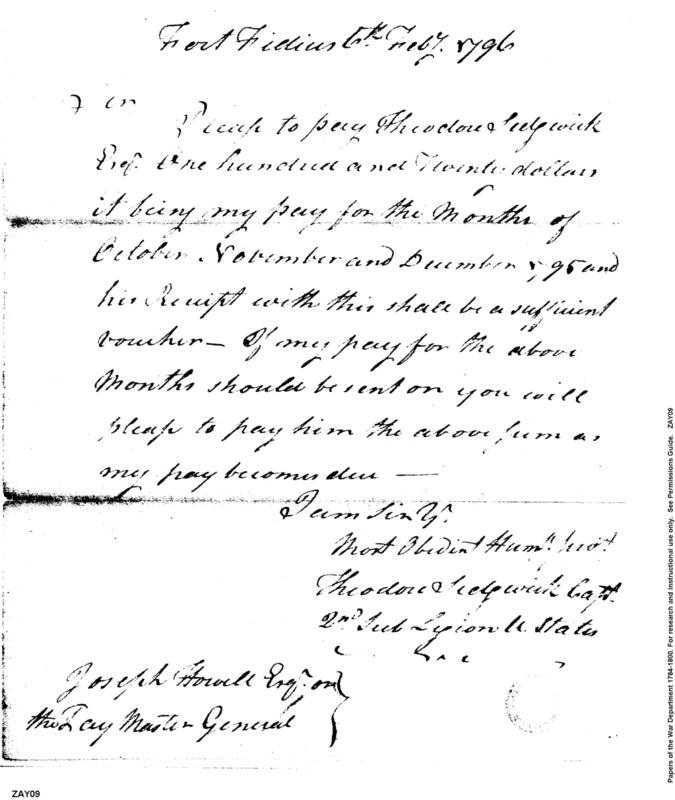 Fort Fidius 6th Feby. 1796
Sir
Please to pay Theodore Sedgwick
Esqr. One hundred and Twenty dollars
it being my pay for the Months of
October November and December 1795 and
his Receipt with this shall be a sufficient
voucher — If my pay for the above
Months should be sent on you will
please to pay him the above sum as
my pay becomes due —
I am Sir Yr.
Most Obedint Humbl. Servt.
Theodore Sedgwick Capt.
2nd Sub Legion U States
Joseph Howell Esqr. or
the Pay Master General
Papers of the War Department 1784-1800. For research and instructional use only. See Permissions Guide. ZAY09
ZAY09